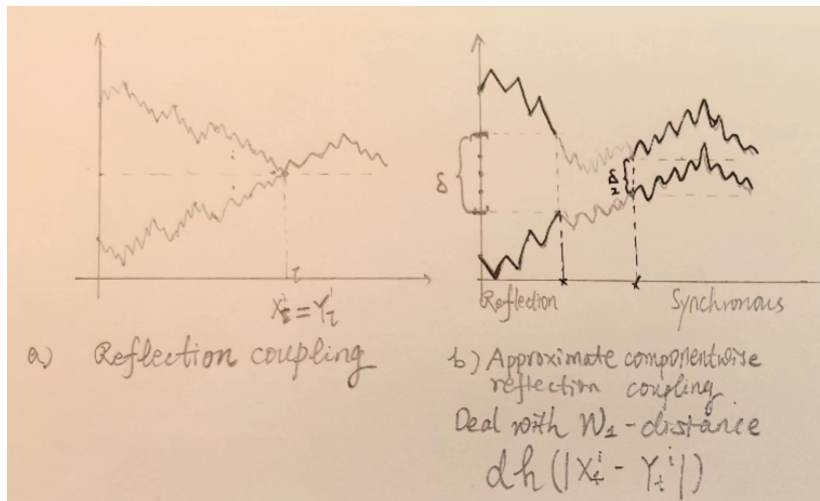 τ
X_τ^i = Y_τ^i
a) Reflection coupling
δ
δ/2
Reflection
Synchronous
b) Approximate componentwise
reflection coupling
Deal with W_1 - distance
dh(|X_t^i - Y_t^i|)